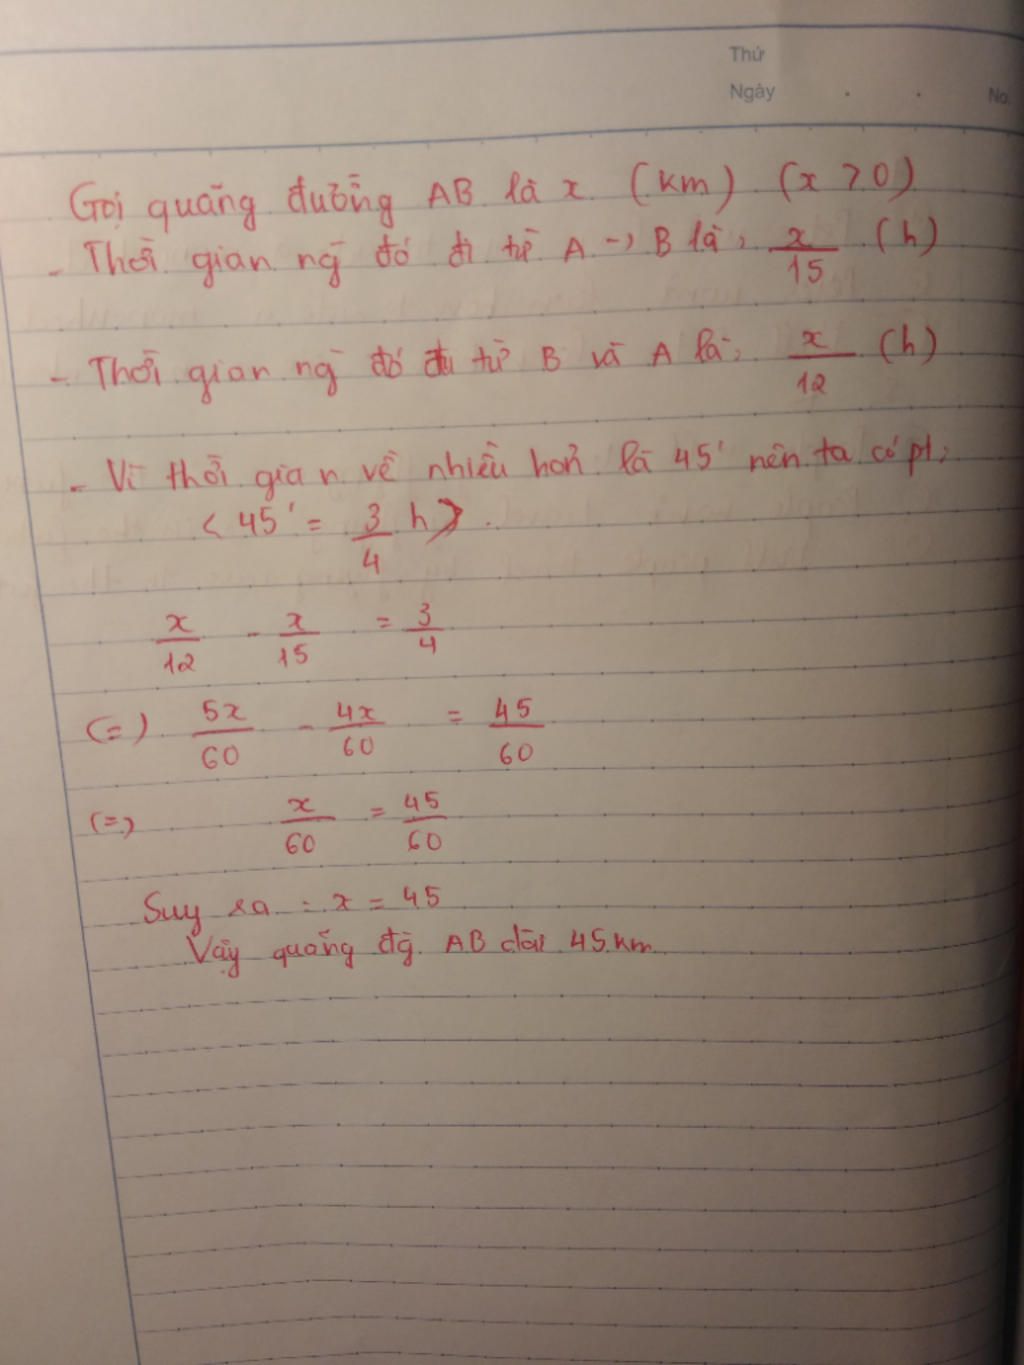 Thứ
Ngày . . No.
Gọi quãng đường AB là x (km) (x > 0)
- Thời gian ng` đó đi từ A -> B là: x/15 (h)
- Thời gian ng` đó đi từ B và A là: x/12 (h)
- Vì thời gian về nhiều hơn là 45' nên ta có pt:
< 45' = 3/4 h > .
x/12 - x/15 = 3/4
(=) 5x/60 - 4x/60 = 45/60
(=) x/60 = 45/60
Suy ra : x = 45
Vậy quãng đg. AB dài 45 km